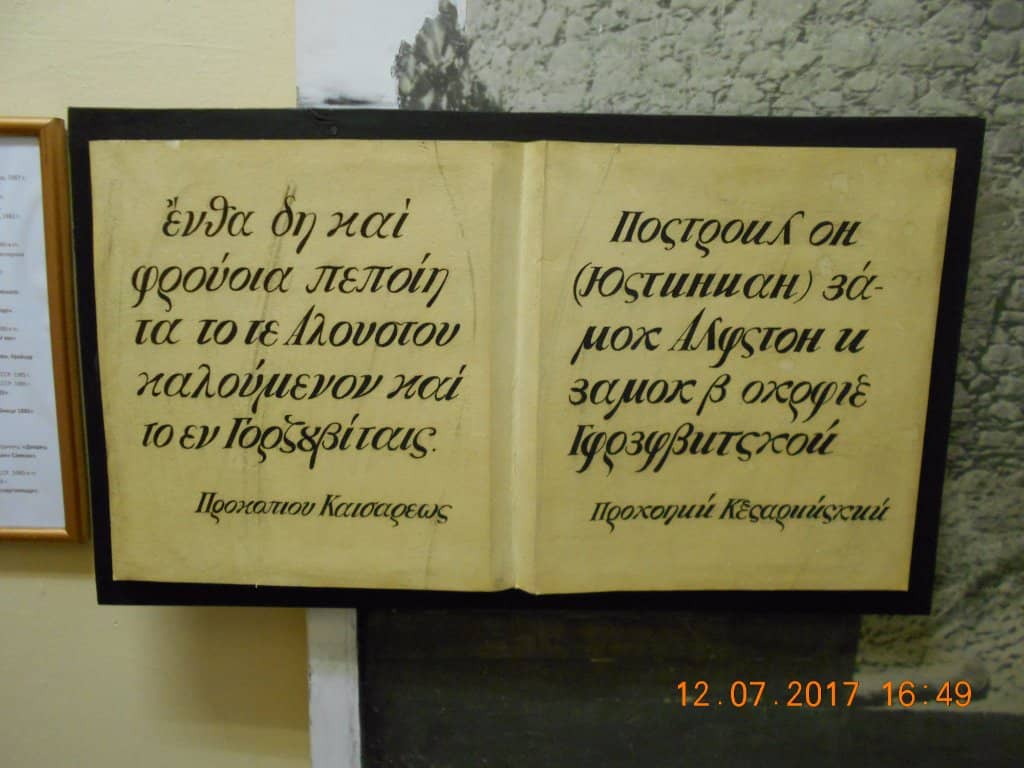 ἔνθα δη καὶ
φρούσια πεποίη
τα το τε Αλουστου
καλούμενον καὶ
το εν Γορζȣβίταις.
Προκοπιου Καισαρεως
Построил он
(Юстиниан) за́-
мок Алустон и
замок в округе
Гурзувитской
Прокопий Кесарийский
12.07.2017 16:49